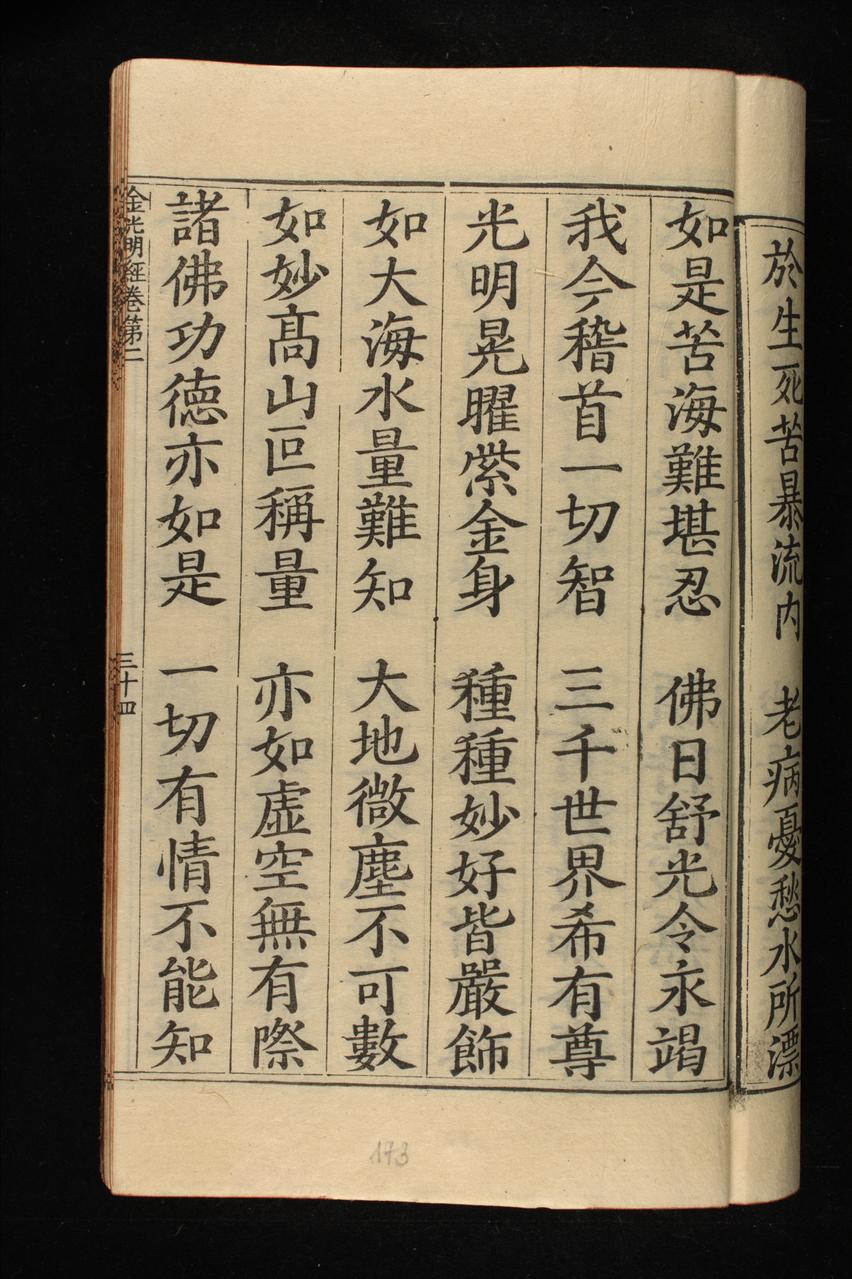 於生死苦暴流内　老病憂愁水所漂
如是苦海難堪忍　佛日舒光令永竭
我今稽首一切智　三千世界希有尊
光明晃曜紫金身　種種妙好皆嚴飾
如大海水量難知　大地微塵不可數
如妙髙山叵稱量　亦如虚空無有際
諸佛功德亦如是　一切有情不能知
金光明經卷第二　三十四
173